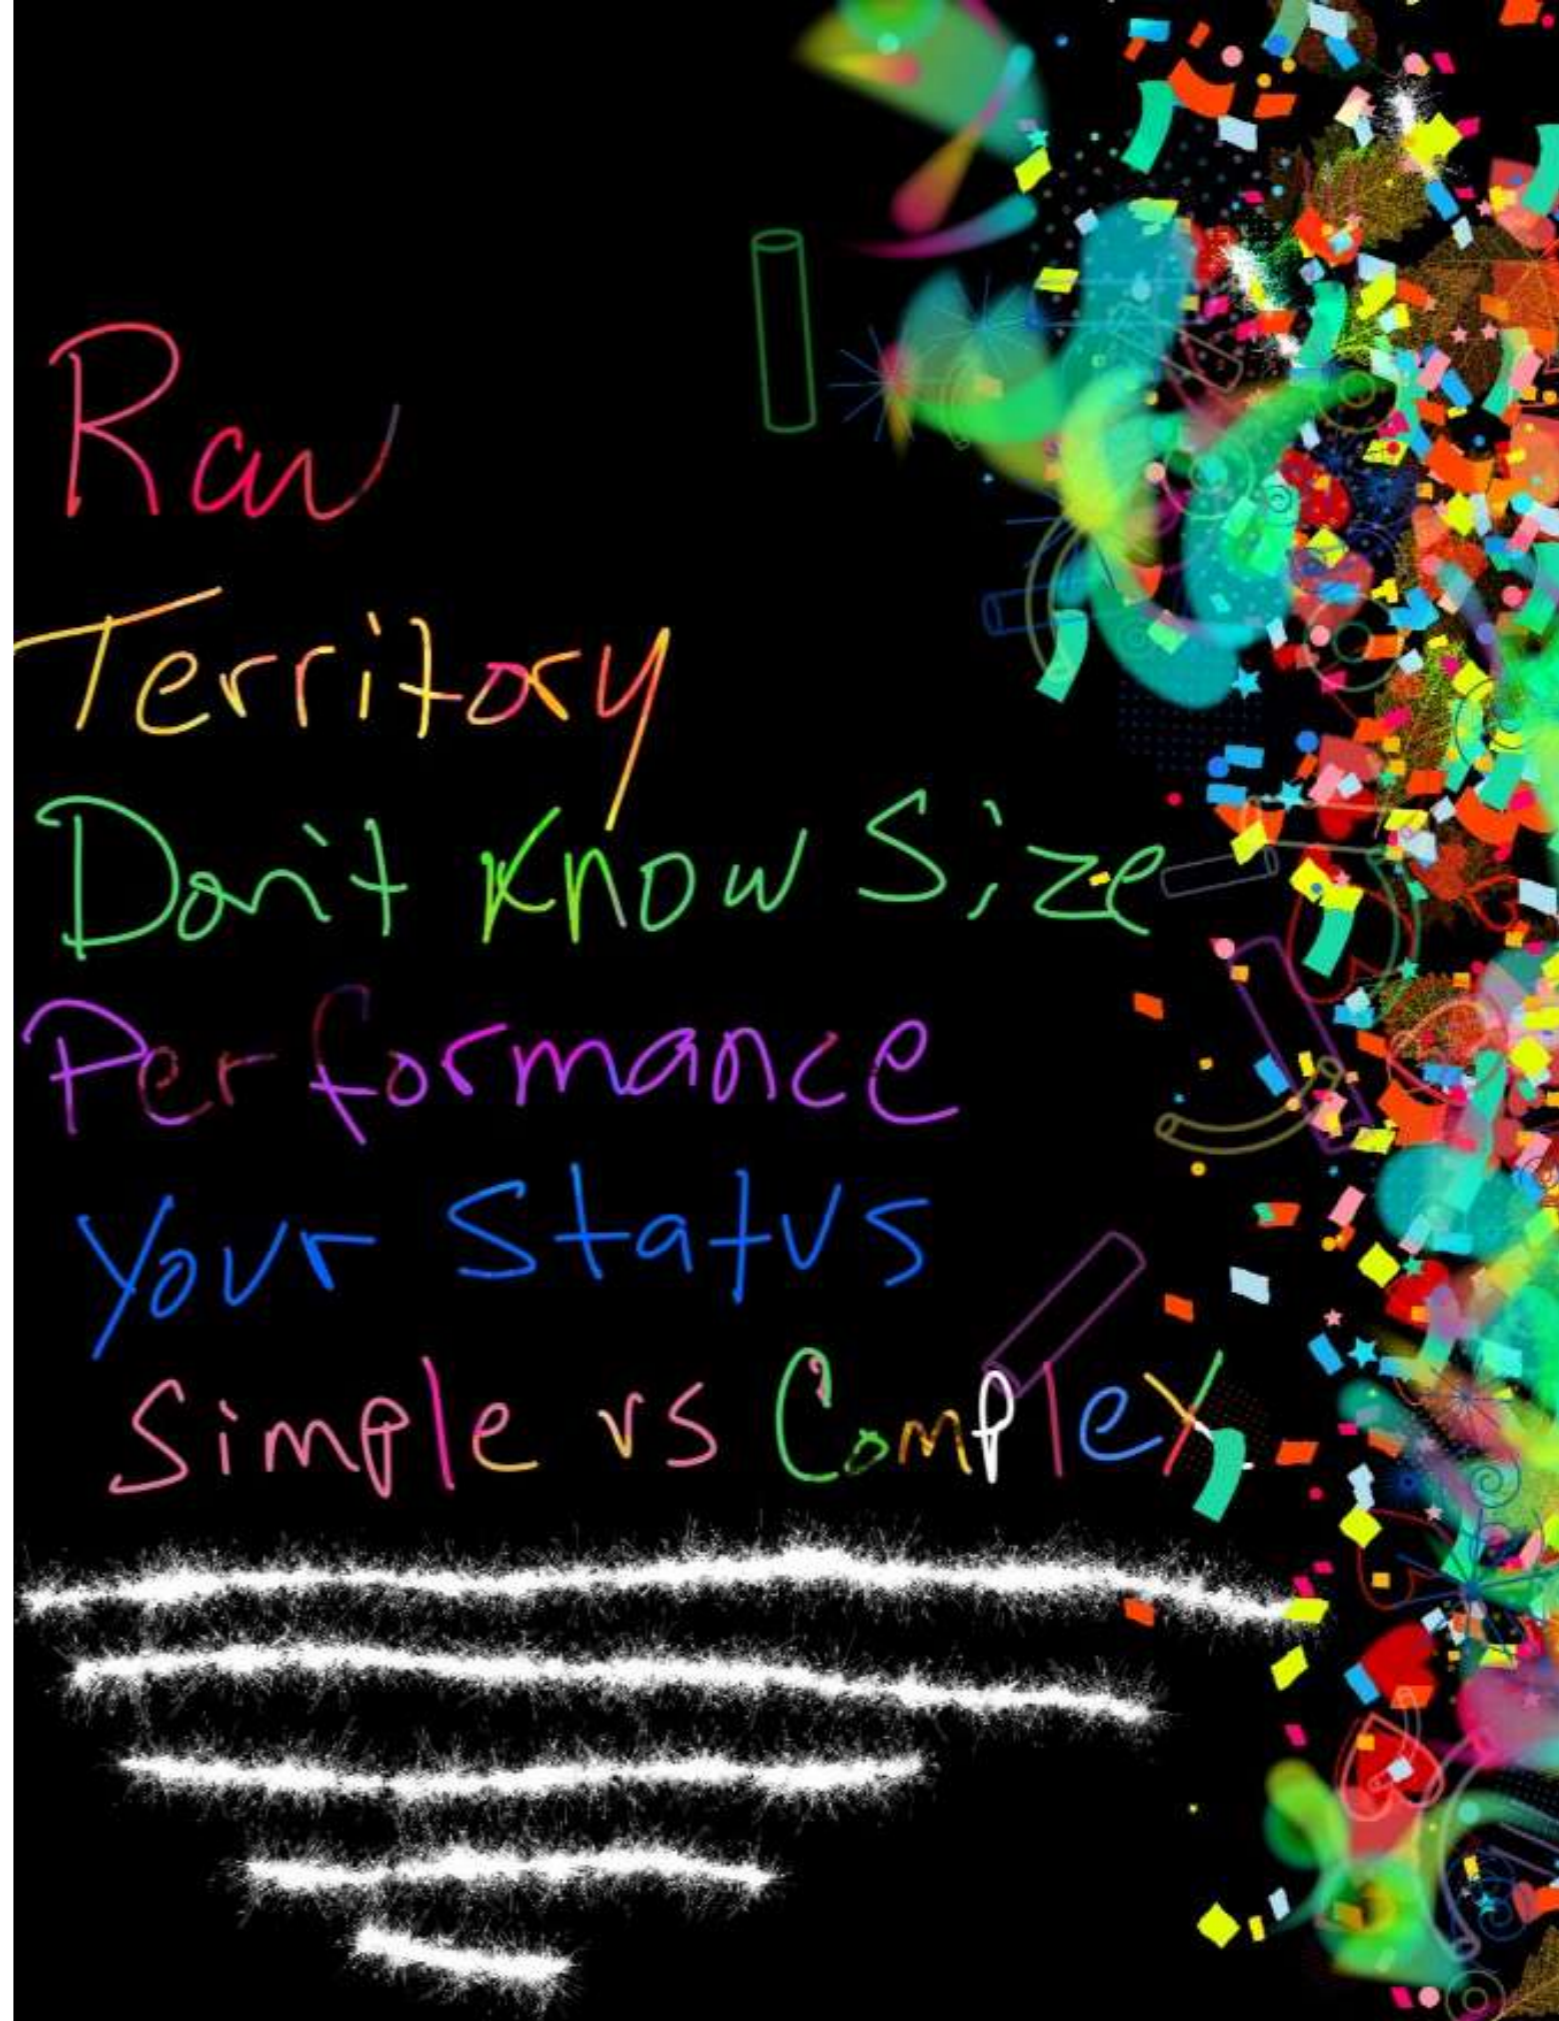 Raw
Territory
Don't Know Size
Performance
Your Status
Simple vs Complex